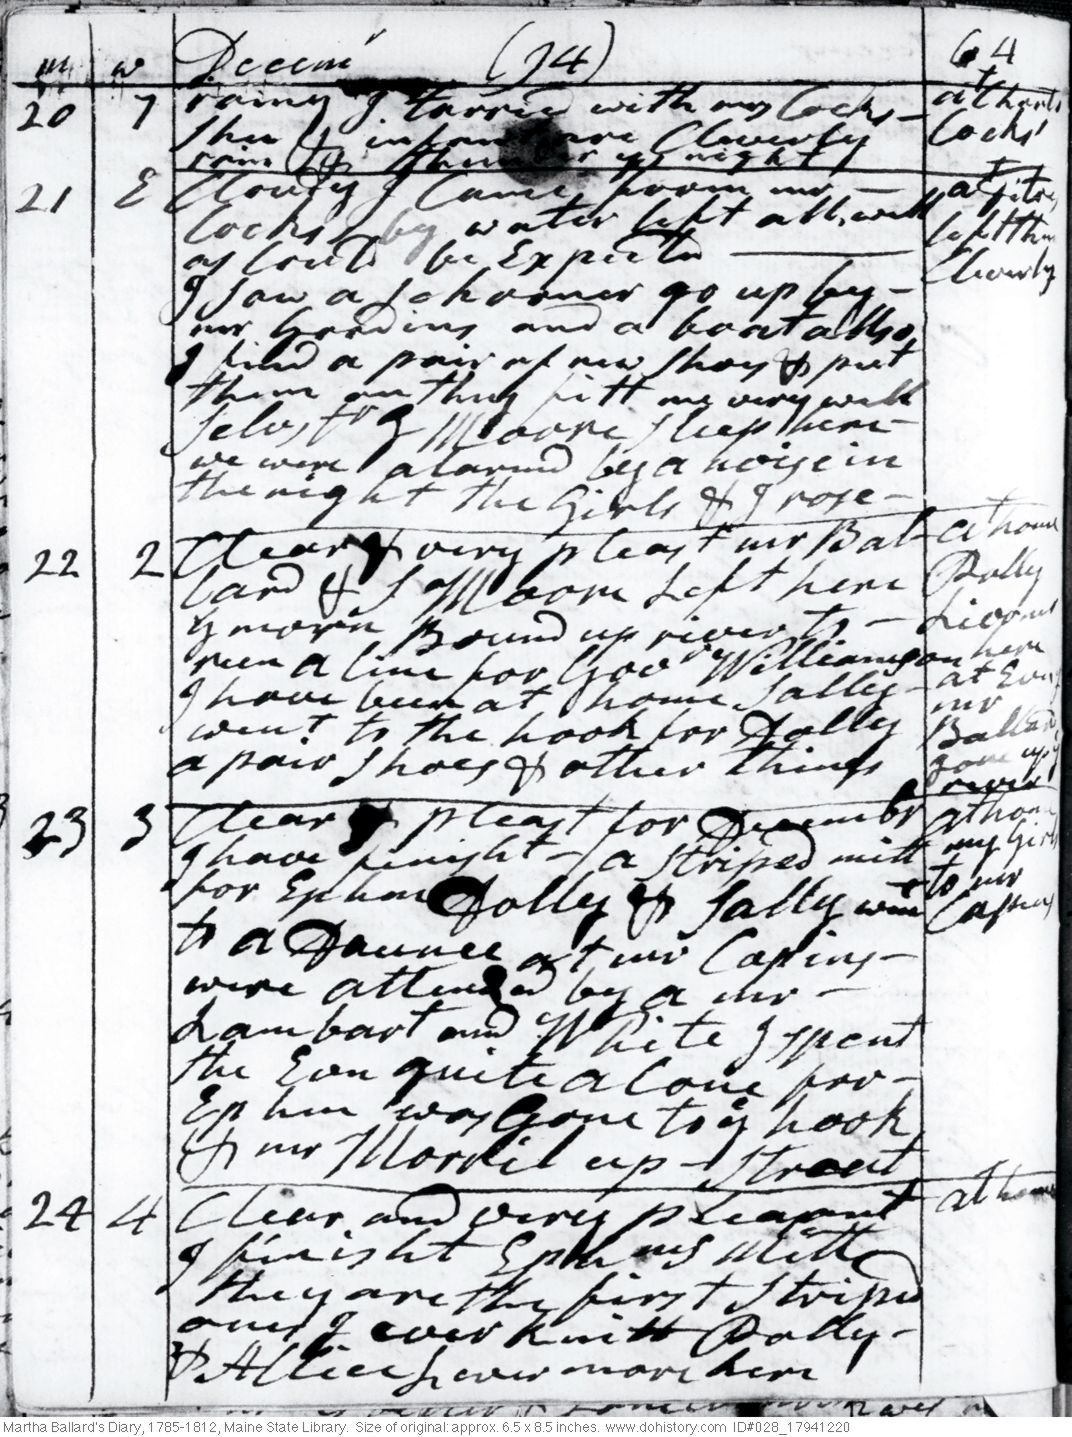 m w Decemr (94) 64
20 7 rainy I tarried with mrs Cocks - at Capt
She & infant are Cleverly Cocks'
rain & thunder ys night
21 E Clowdy I Came from mr - at Ditto
Cocks by water left all well left them
as Could be Expected Cleverly
I saw a Schooner go up by -
mr Hardins and a boat allso
I find a pair of new Shoes & put
them on they fitt me very well
I Moore Sleep here -
we were alarmd by a noise in
the night the Girls & I rose -
22 2 Clear & very pleast mr Bal- at home
lard & J Moore left here Polly
y morn Bound up river to - here
run a line for Gov Williamson at Evng
I have been at home Sally - mr
went to the hook for Dolly Ballard
a pair shoes & other things gone up y
river
23 3 Clear & pleast for Decembr at home
I have finisht a striped mitt my Girls
for Ephm Dolly & Sally went to mr
to a Daunce at mr Capins - Capins
were attended by a mr -
Lambart and White I spent
the Evn quite alone for -
Ephm was Gone to y hook
& mr Morril up - Street
24 4 Clear and very pleasant at home
I finisht Ephms Mitts
they are the first Striped
ones I ever knitt Dolly -
& Allice Livermore here
Martha Ballard's Diary, 1785-1812, Maine State Library. Size of original: approx. 6.5 x 8.5 inches. www.dohistory.com ID#028_17941220